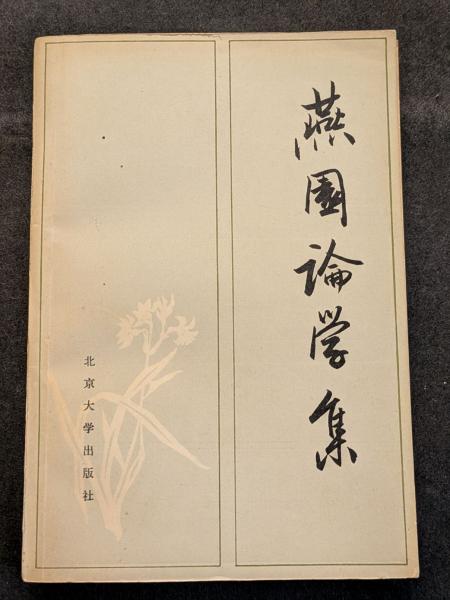 燕園論学集
北京大学出版社